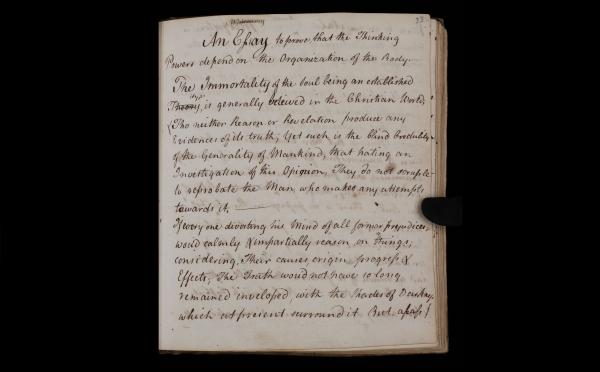 33
An Eſsay to prove, that the Thinking
Powers depend on the Organization of the Body.
The Immortality of the Soul being an established
is generally beleived in the Christian World,
(Tho neither Reason or Revelation produce any
Evidences of its truth; Yet such is the blind Credulity
of the Generality of Mankind, that hating an
Investigation of this Opinion, They do not scruple
to reprobate the Man, who makes any attempts
towards it,
If every one divesting his Mind of all former prejudices
would calmly & impartially reason on Things;
considering, Their causes, origin progreſs &
Effects, The Truth would not have so long
remained inveloped, with the Shades of Darkneſs,
which at present surround it But alaſs!